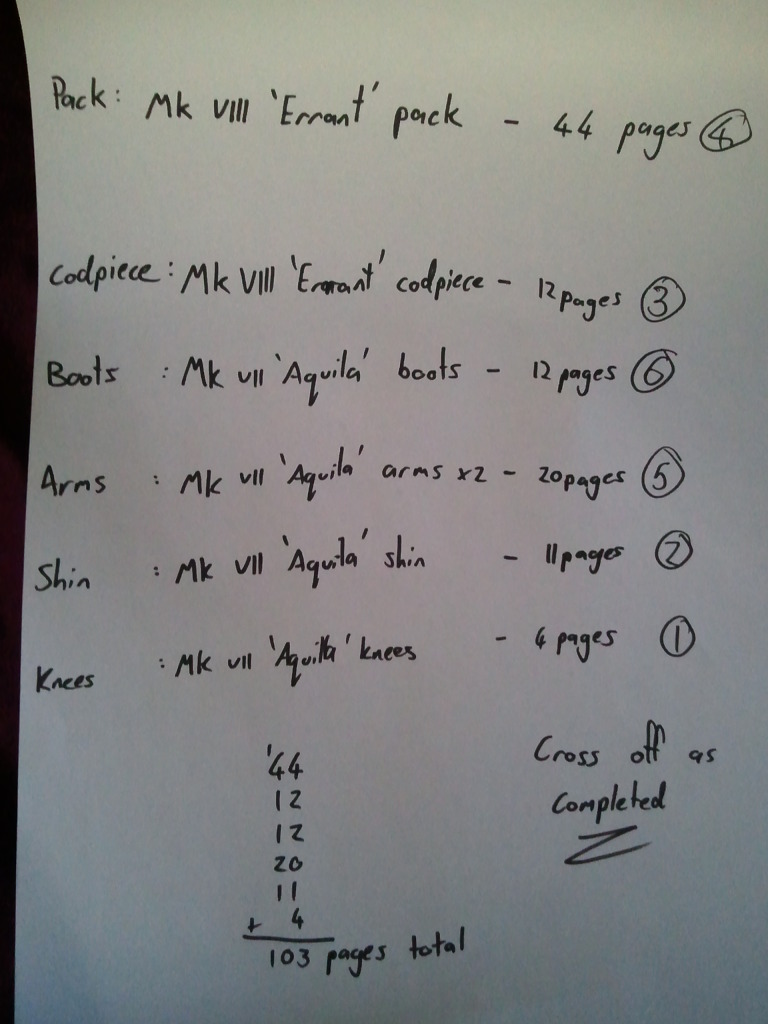 Pack: Mk VIII 'Errant' pack - 44 pages 4
Codpiece: Mk VIII 'Errant' codpiece - 12 pages 3
Boots : Mk VII 'Aquila' boots - 12 pages 6
Arms : Mk VII 'Aquila' arms x2 - 20 pages 5
Shin : Mk VII 'Aquila' shin - 11 pages 2
Knees : Mk VII 'Aquilla' knees - 4 pages 1
Cross off as
Completed
'44
12
12
20
11
+ 4
103 pages total